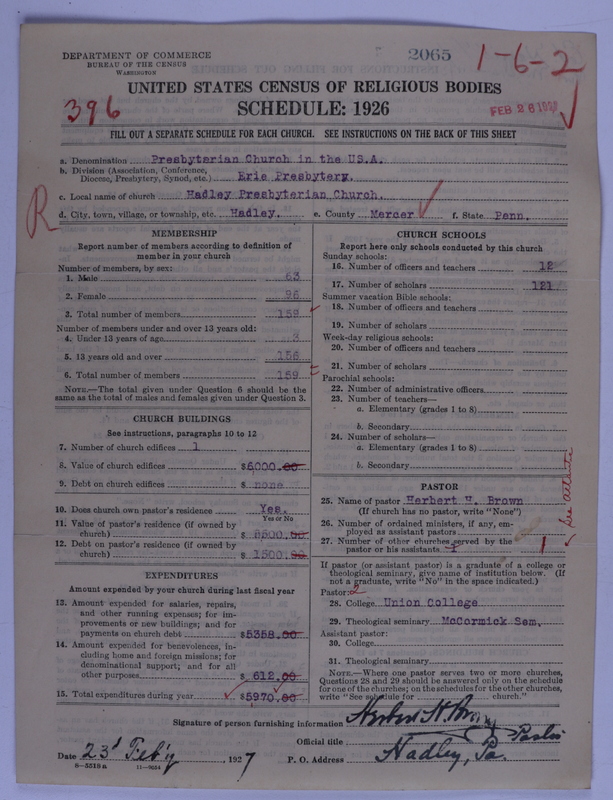 2065
1-6-2
DEPARTMENT OF COMMERCE
BUREAU OF THE CENSUS
WASHINGTON
396
UNITED STATES CENSUS OF RELIGIOUS BODIES
SCHEDULE: 1926
FEB 26
FILL OUT A SEPARATE SCHEDULE FOR EACH CHURCH. SEE INSTRUCTIONS ON THE BACK OF THIS SHEET
R
a. Denomination Presbyterian Church in the U.S.A.
b. Division (Association, Conference, Diocese, Presbytery, Synod, etc.) Erie Presbytery.
c. Local name of church Hadley Presbyterian Church.
d. City, town, village, or township, etc. Hadley. e. County Mercer f. State Penn.
MEMBERSHIP
Report number of members according to definition of
member in your church
Number of members, by sex:
1. Male 63
2. Female 96
3. Total number of members 159
Number of members under and over 13 years old:
4. Under 13 years of age 3
5. 13 years old and over 156
6. Total number of members 159
NOTE.—The total given under Question 6 should be
same as the total of males and females given under Question 3.
CHURCH BUILDINGS
See instructions, paragraphs 10 to 12
7. Number of church edifices 1
8. Value of church edifices $6000.00
9. Debt on church edifices $ none
10. Does church own pastor's residence Yes.
Yes or No
11. Value of pastor's residence (if owned by
church) $ 3500.00
12. Debt on pastor's residence (if owned by
church) $ 1500.00
EXPENDITURES
Amount expended by your church during last fiscal year
13. Amount expended for salaries, repairs,
and other running expenses; for im-
provements or new buildings; and for
payments on church debt $5358.00
14. Amount expended for benevolences, in-
cluding home and foreign missions; for
denominational support; and for all
other purposes $ 612.00
15. Total expenditures during year $5970.00
CHURCH SCHOOLS
Report here only schools conducted by this church
Sunday schools:
16. Number of officers and teachers 12
17. Number of scholars 121
Summer vacation Bible schools:
18. Number of officers and teachers
19. Number of scholars
Week-day religious schools:
20. Number of officers and teachers
21. Number of scholars
Parochial schools:
22. Number of administrative officers
23. Number of teachers—
a. Elementary (grades 1 to 8)
b. Secondary
24. Number of scholars—
a. Elementary (grades 1 to 8)
b. Secondary
PASTOR
25. Name of pastor Herbert H. Brown
(If church has no pastor, write "None")
26. Number of ordained ministers, if any, em-
ployed as assistant pastors
27. Number of other churches served by the
pastor or his assistants 1 1
See
If pastor (or assistant pastor) is a graduate of a college or
theological seminary, give name of institution below. (If
not a graduate, write "No" in the space indicated.)
Pastor: 2
28. College Union College
29. Theological seminary McCormick Sem.
Assistant pastor:
30. College
31. Theological seminary
NOTE.—Where one pastor serves two or more churches,
Questions 28 and 29 should be answered only on the schedule
for one of the churches; on the schedules for the other churches,
write "See schedule for church."
Signature of person furnishing information Herbert H. Brown
Official title Pastor
Date 23d Feb'y, 1927 P. O. Address Hadley, Pa.
8-5518a 11-9054